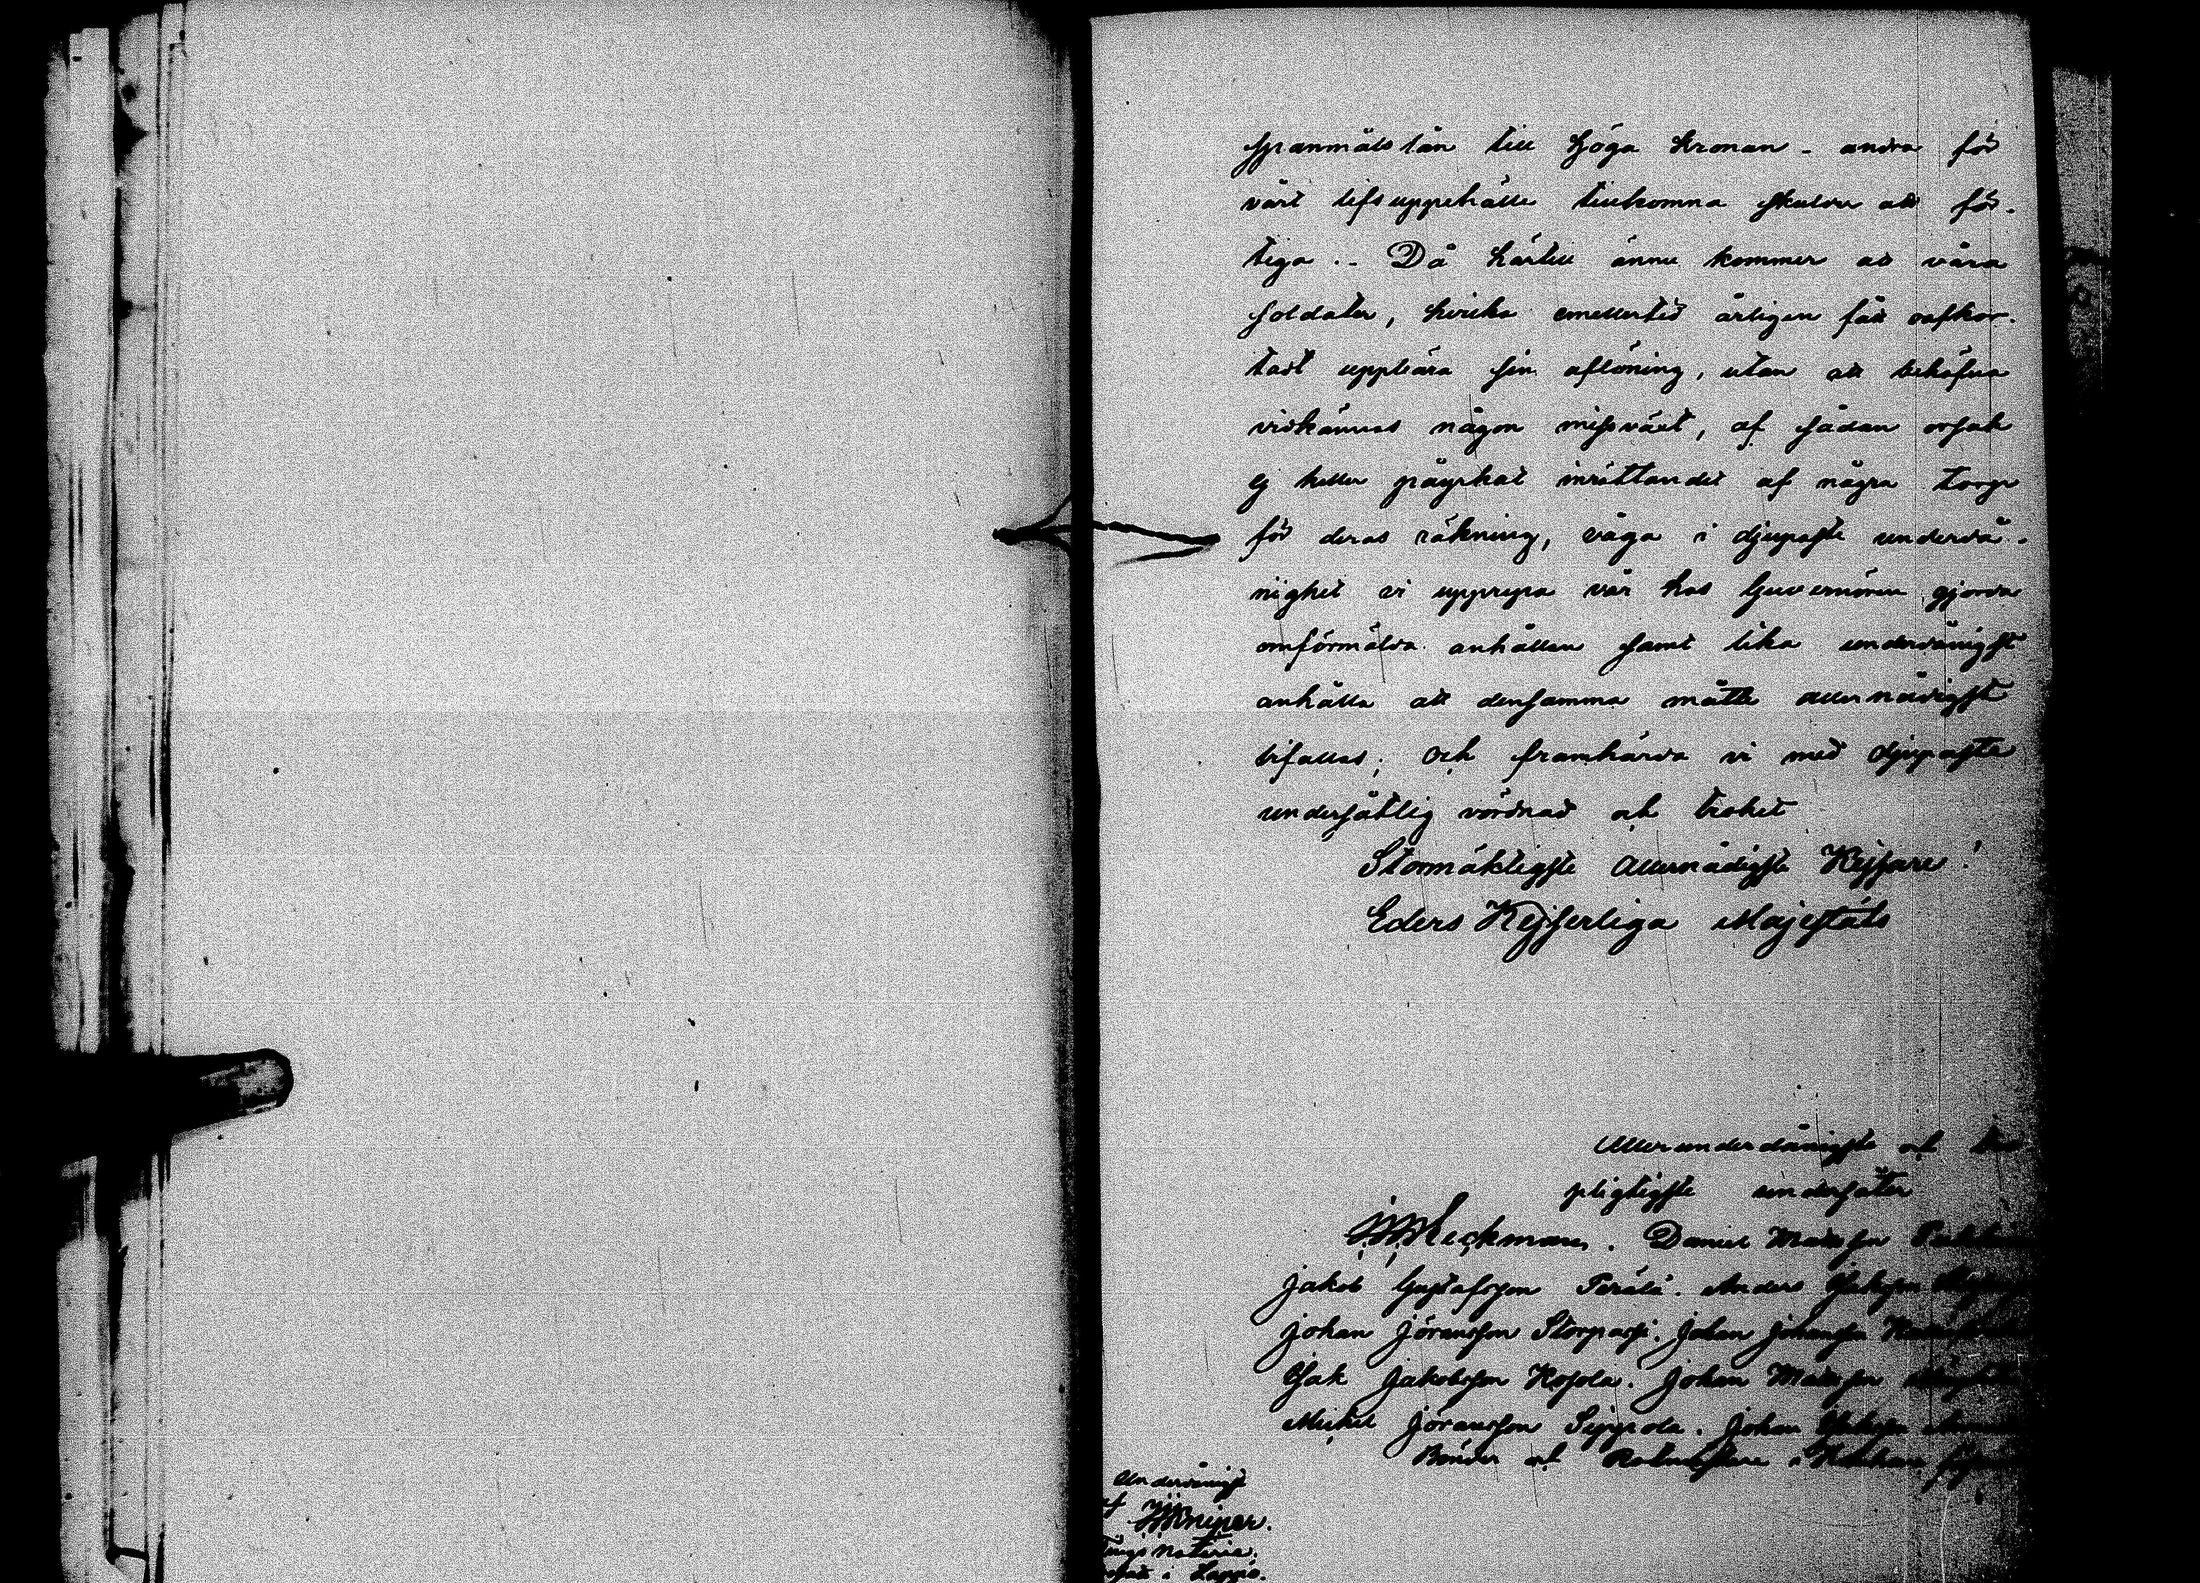 spanmåls lån till höga Kronan - andra för
vårt lifsuppehälle tillkomna skulder att för-
tiga.- Då härtill ännu kommer att våra
soldater, hvilka emellertid årligen fått oafkor-
tadt uppbära sin aflöning, utan att behöfva
vidkännas någon missväxt, af sådan orsak
ej heller påyrkat inrättandet af några torp
för deras räkning, våga i djupaste underdå-
nighet vi upprepa vår hos Guvernören gjorda
omförmälda anhållan samt lika underdånigst
anhålla att densamma måtte allernådigst
bifallas; och framhärda vi med djupaste
undersåtlig vördnad och trohet
Stormäktigste Allernådigste Kejsare!
Eders Kejserliga Majestäts
Allerunderdånigste och
pligtigste undersåter
Heckman. Daniel Mattsson
Jakob Gustafsson Perälä. Anders
Johan Jöransson Storpassi. Johan Johansson
Isak Jakobsson Kosola. Johan Mattsson
Mickel Jöransson Seppola. Johan
Bönder och Rotmästare i
Underdånigst
af Kniper.
Tings notarie.
i Lappo.